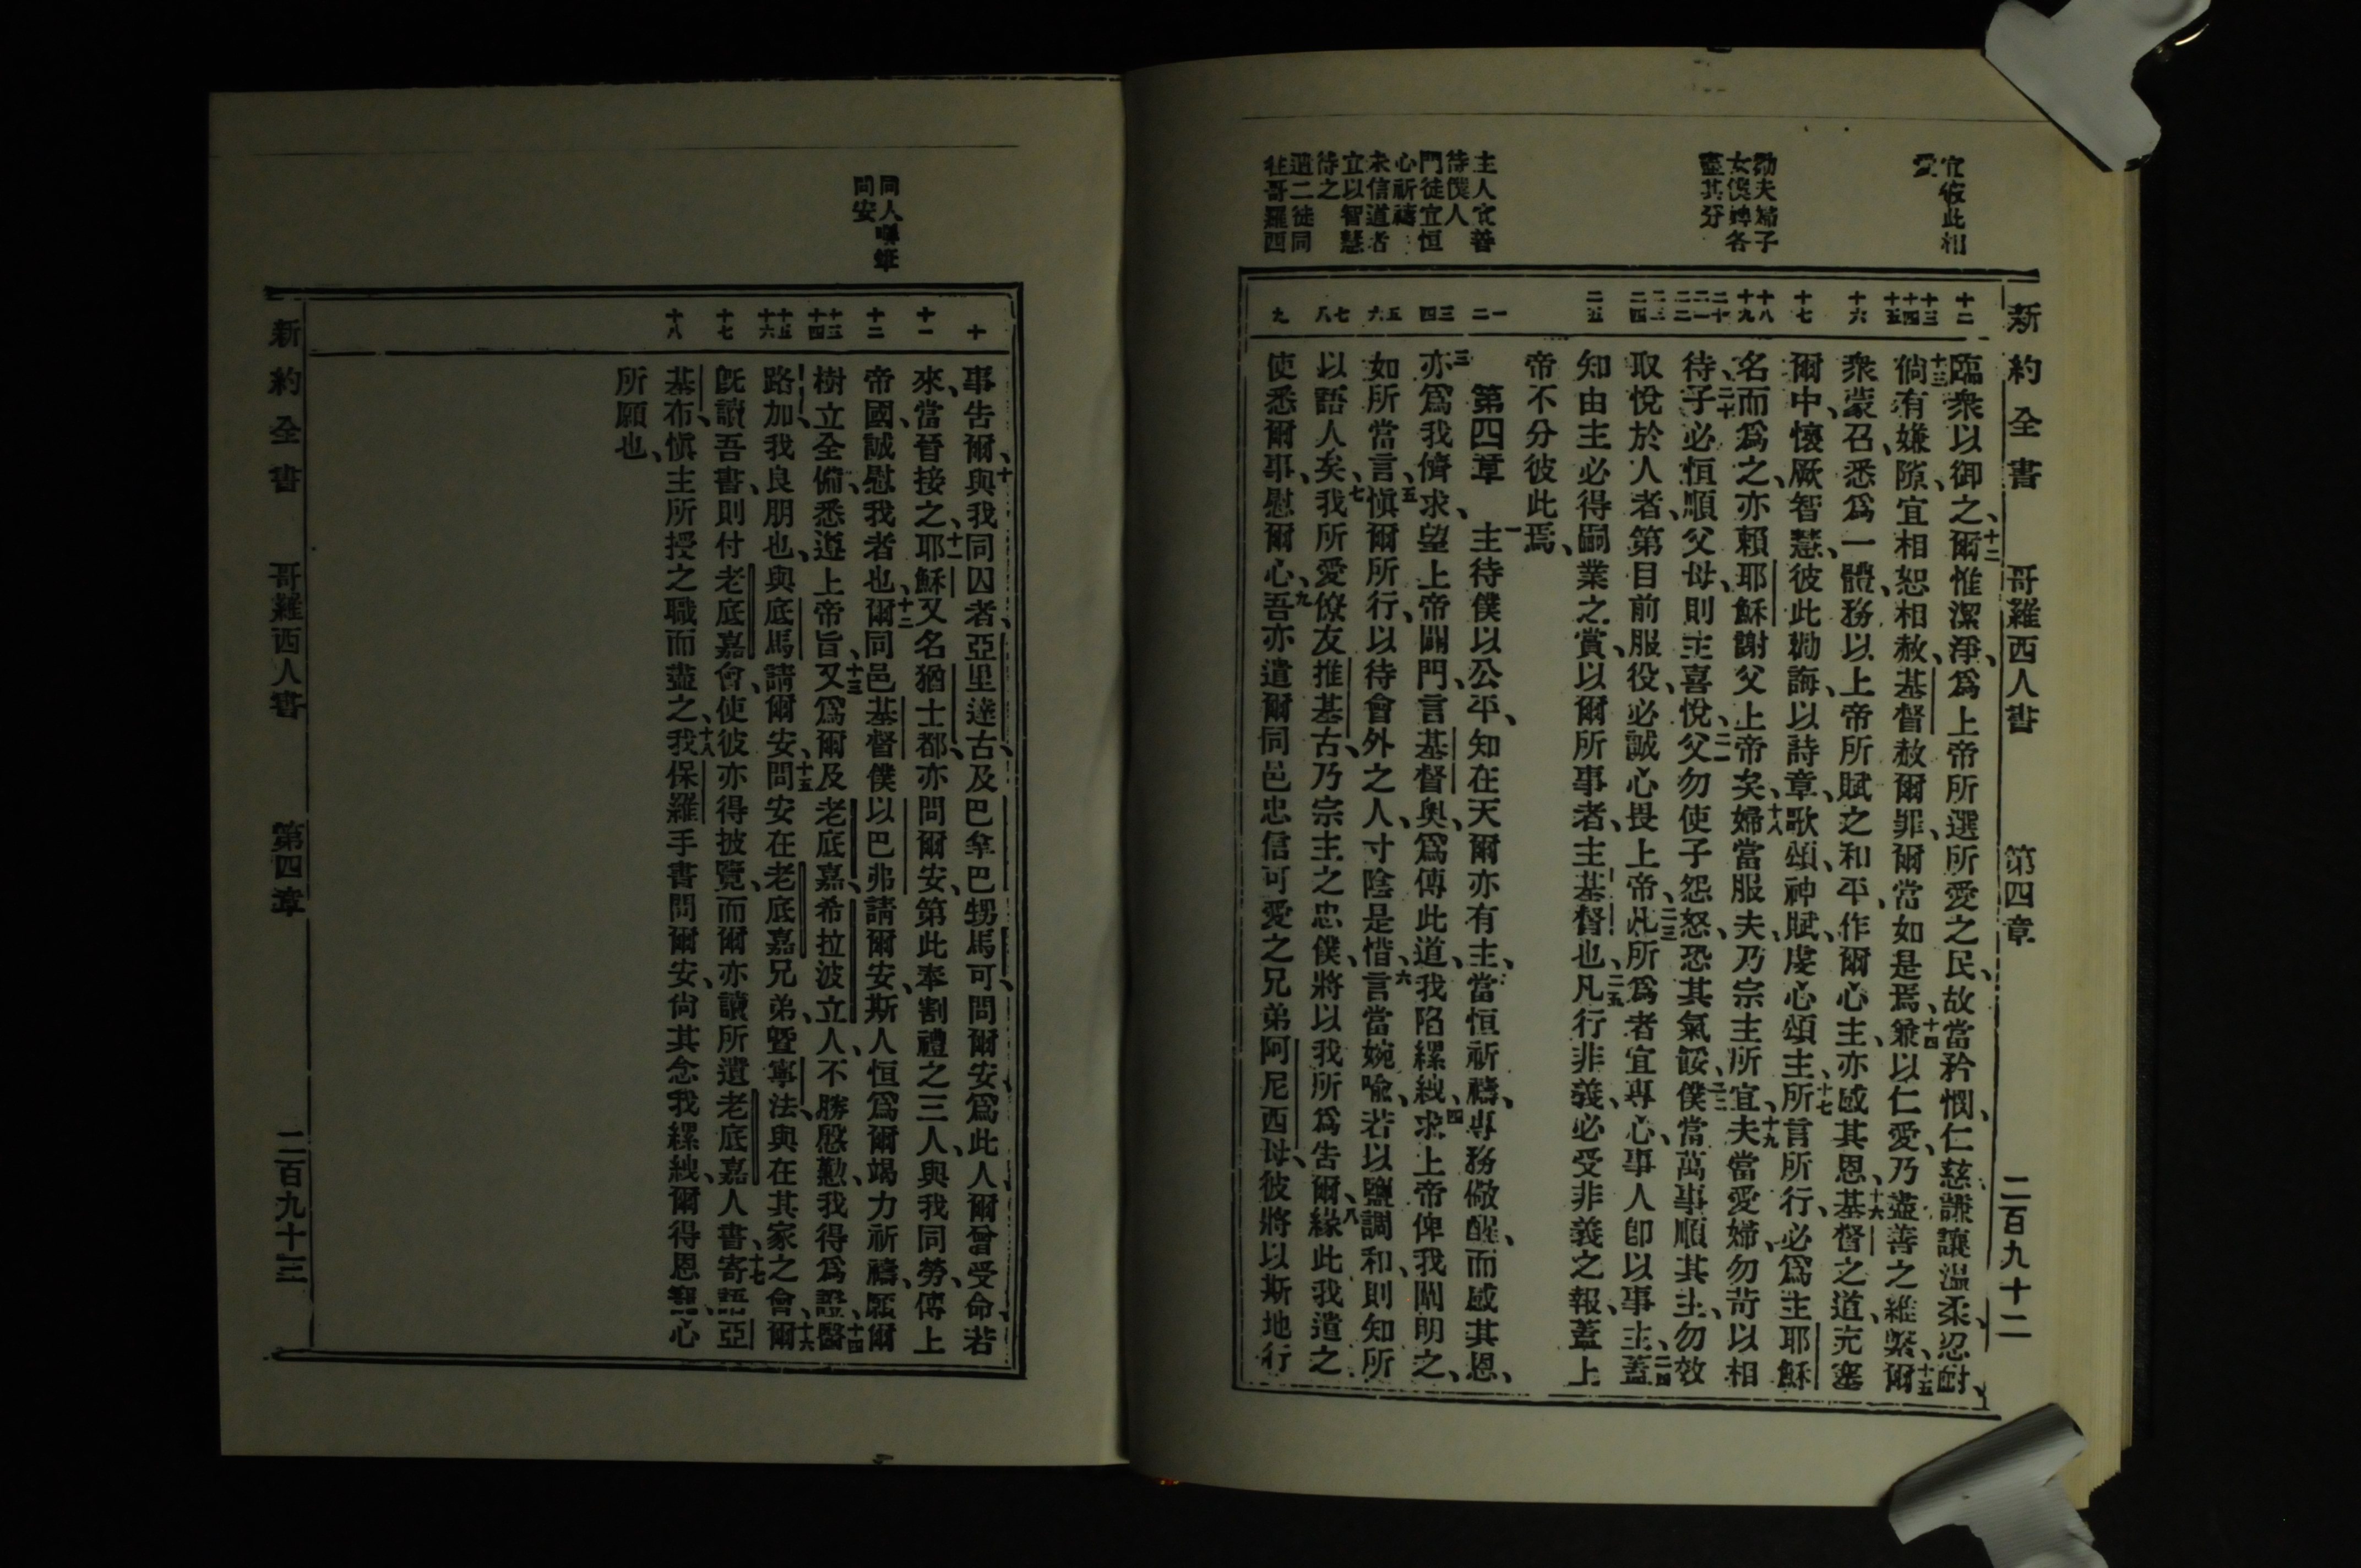 新約全書 哥羅西人書 第四章 二百九十二
宜彼此相
愛
勸夫婦子
女僕婢各
盡其分
主人宜善
待僕人
門徒宜恒
心祈禱
未信道者
宜以智慧
待之
遣二徒同
往哥羅西
十二
十三
十四
十五
十六
十七
十八
十九
二十
二一
二二
二三
二四
二五
一
二
三
四
五
六
七
八
九
臨衆以御之、十二爾惟潔淨、爲上帝所選所愛之民、故當矜憫、仁慈謙讓溫柔、忍耐、
十三倘有嫌隙、宜相恕相赦、基督赦爾罪、爾當如是焉、十四兼以仁愛、乃盡善之維繫、十五爾
衆蒙召、悉爲一體、務以上帝所賦之和平、作爾心主、亦感其恩、十六基督之道、充塞
爾中、懷厥智慧、彼此勸誨、以詩章、歌頌、神賦、虔心頌主、十七所言所行、必爲主耶穌
名而爲之、亦賴耶穌謝父上帝矣、十八婦當服夫、乃宗主所宜、十九夫當愛婦、勿苛以相
待、二十子必恒順父母、則主喜悅、二一父勿使子怨怒、恐其氣餒、二二僕當萬事順其主、勿效
取悅於人者、第目前服役、必誠心畏上帝、二三凡所爲者宜專心、事人卽以事主、二四蓋
知由主必得嗣業之賞、以爾所事者、主基督也、二五凡行非義、必受非義之報、蓋上
帝不分彼此焉、
第四章 一主待僕以公平、知在天爾亦有主、二當恒祈禱、專務儆醒、而感其恩、
三亦爲我儕求、望上帝闢門、言基督奧、爲傳此道、我陷縲絏、四求上帝俾我闡明之、
如所當言、五愼爾所行、以待會外之人、寸陰是惜、六言當婉喩、若以鹽調和、則知所
以語人矣、七我所愛僚友推基古、乃宗主之忠僕、將以我所爲告爾、八緣此我遣之
使悉爾事、慰爾心、九吾亦遣爾同邑忠信可愛之兄弟阿尼西母、彼將以斯地行
同人聯筆
問安
十
十一
十二
十三
十四
十五
十六
十七
十八
事告爾、十與我同囚者、亞里達古、及巴拿巴甥馬可、問爾安、爲此人、爾曾受命、若
來、當晉接之、十一耶穌又名猶士都、亦問爾安、第此奉割禮之三人、與我同勞、傳上
帝國、誠慰我者也、十二爾同邑基督僕以巴弗、請爾安、斯人恒爲爾竭力祈禱、願爾
樹立全備、悉遵上帝旨、十三又爲爾及老底嘉、希拉波立人、不勝慇懃、我得爲證、十四醫
路加、我良朋也、與底馬請爾安、十五問安在老底嘉兄弟、暨寧法、與在其家之會、十六爾
旣讀吾書、則付老底嘉會、使彼亦得披覽、而爾亦讀所遺老底嘉人書、十七寄語亞
基布、愼主所授之職而盡之、十八我保羅手書問爾安、尙其念我縲絏、爾得恩寵、心
所願也、
新約全書 哥羅西人書 第四章 二百九十三